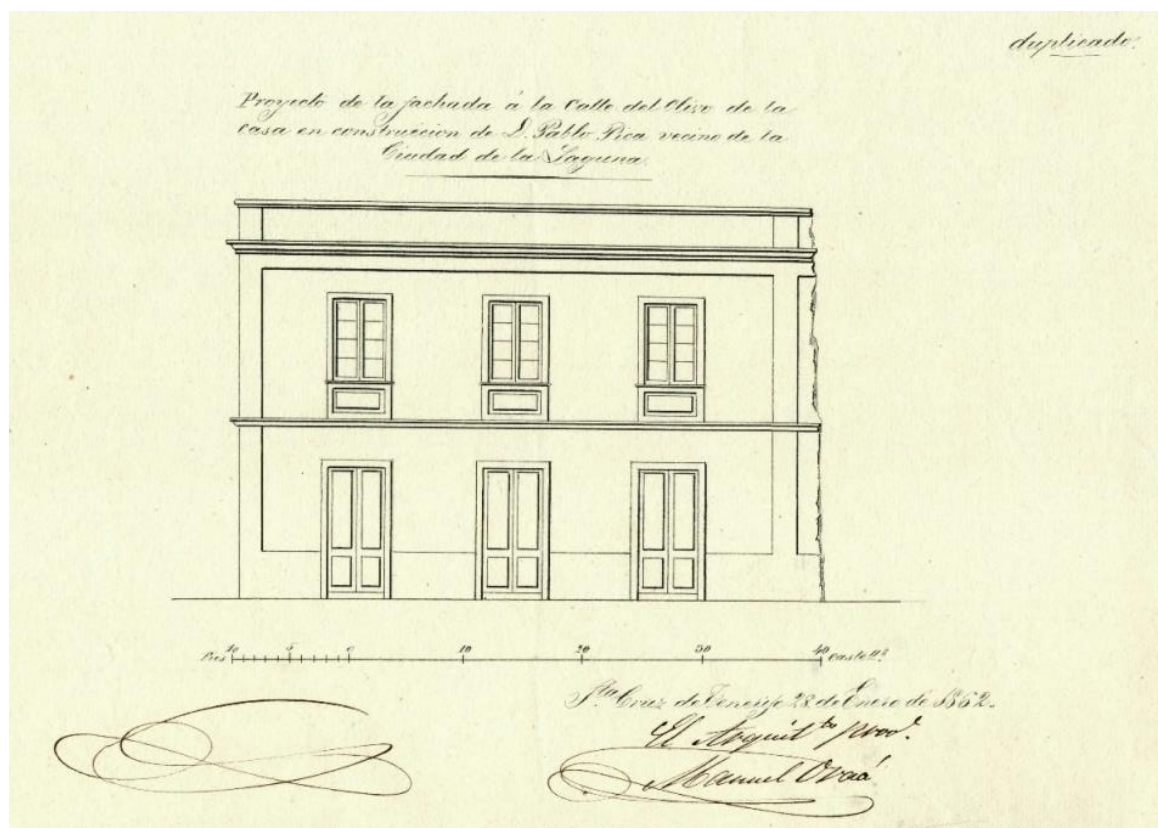 duplicado.
Proyecto de la fachada á la Calle del Olivo de la
casa en construccion de D. Pablo Pica vecino de la
Ciudad de la Laguna.
Pies 10 5 0 10 20 30 40 castells
Sta Cruz de Tenerife 28 de Enero de 1862.
El Arquitto provl.
Manuel Oraá